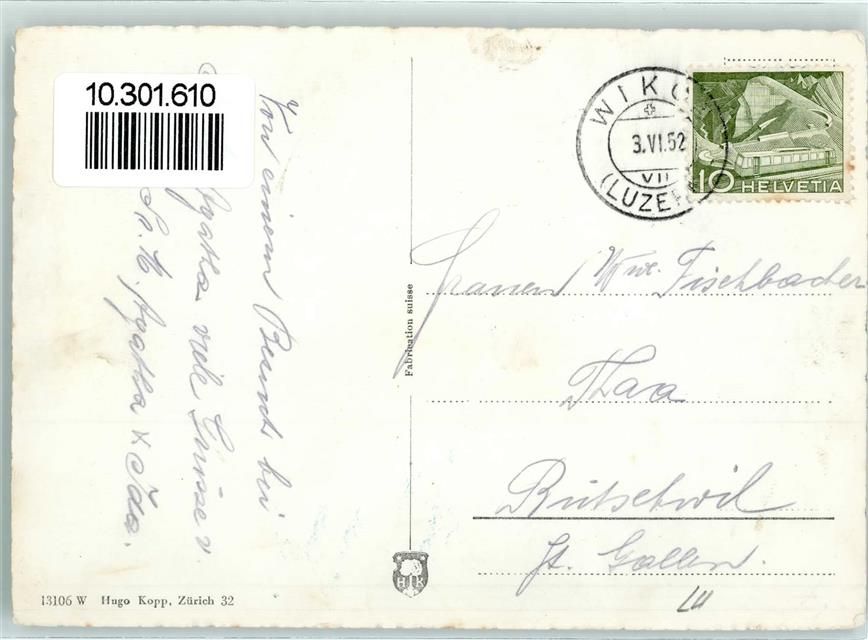 10.301.610
Von einem Besuch bei
Agatha viele Grüsse v.
Sr. M. Agatha & Ida.
Fabrication suisse
WIKON
3.VI.52
VII
(LUZERN)
10 HELVETIA
Frauen Wwe. Fischbacher
Thaa
Bütschwil
St. Gallen.
HK
13106 W Hugo Kopp, Zürich 32